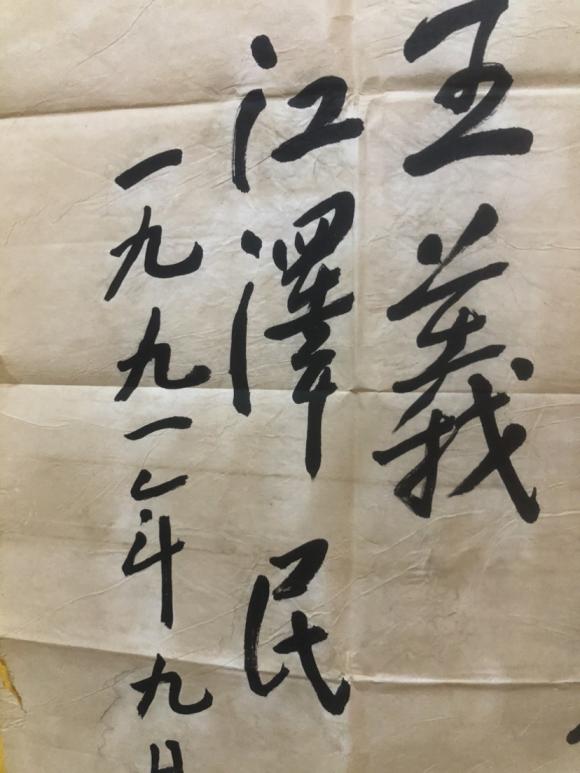 主義
江澤民
一九九一年九月